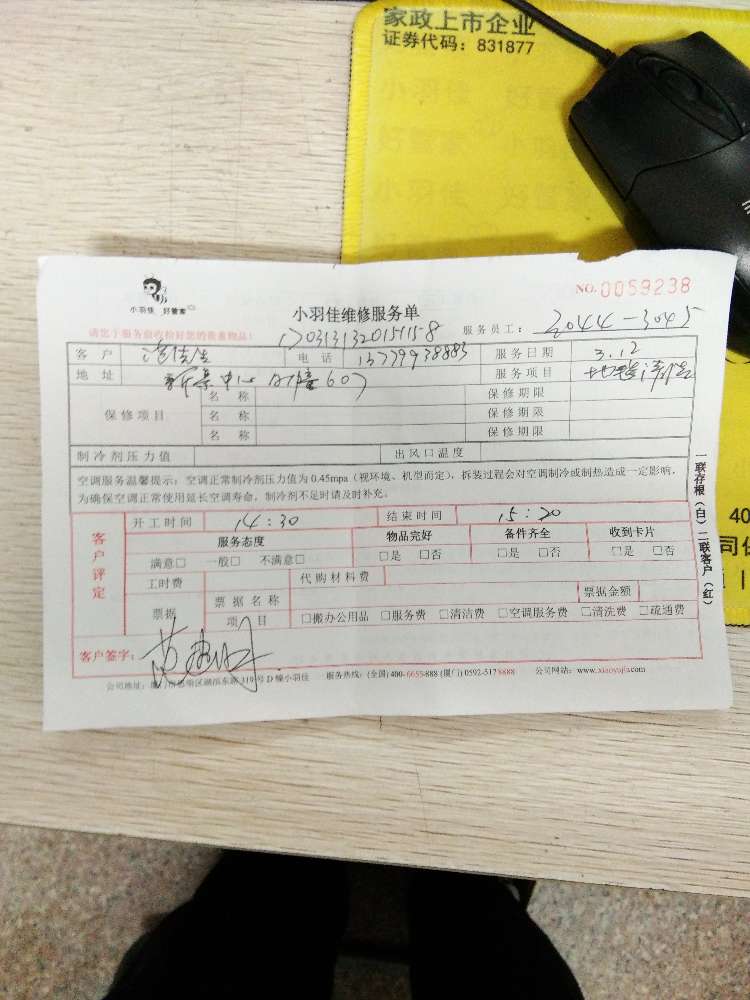 家政上市企业
证券代码：831877
小羽佳 好管家
好管家 小羽佳
小羽佳 好管家
小羽佳 好管家
NO.0059238
小羽佳维修服务单
请您于服务前收检好您的贵重物品！
服务员工： 3044-3045
客 户 电 话 13779938883 服务日期 3.12
地 址 中心 607 服务项目 地毯清洗
保修项目 名 称 保修期限
名 称 保修期限
名 称 保修期限
制冷剂压力值 出风口温度
空调服务温馨提示：空调正常制冷剂压力值为0.45mpa（视环境、机型而定），拆装过程会对空调制冷或制热造成一定影响，
为确保空调正常使用延长空调寿命，制冷剂不足时请及时补充。
一联存根（白）二联客户（红）
客户评定
开工时间 14：30 结束时间 15：20
服务态度 物品完好 备件齐全 收到卡片
满意□ 一般□ 不满意□ □是 □否 □是 □否 □是 □否
工时费 代购材料费
票据 票据名称 票据金额
项 目 □搬办公用品 □服务费 □清洁费 □空调服务费 □清洗费 □疏通费
客户签字：
公司地址：厦门市思明区湖滨东路319号D幢小羽佳 服务热线：(全国)400-6655-888 (厦门)0592-5178888 公司网站：www.xiaoyujia.com
40
司保